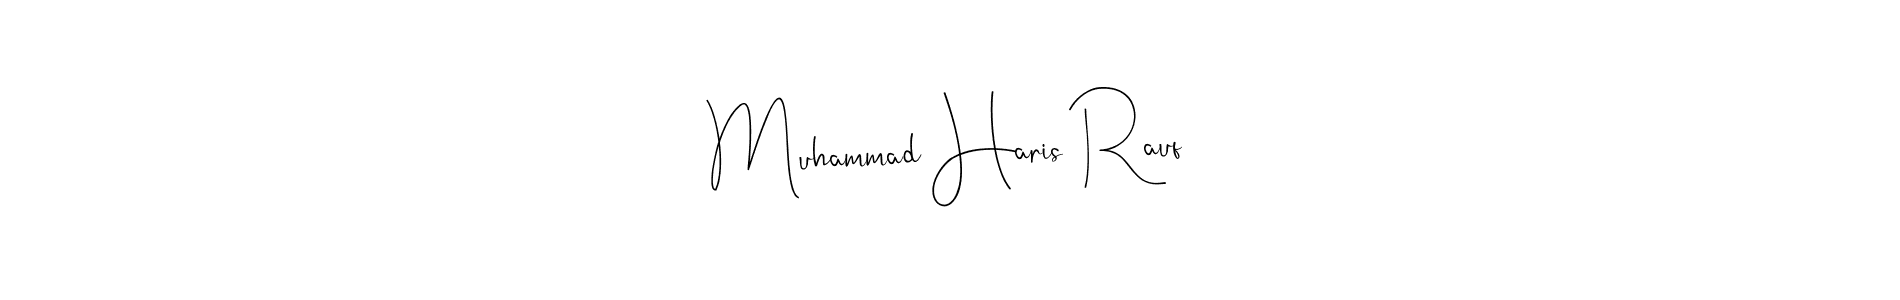 Muhammad Haris Rauf